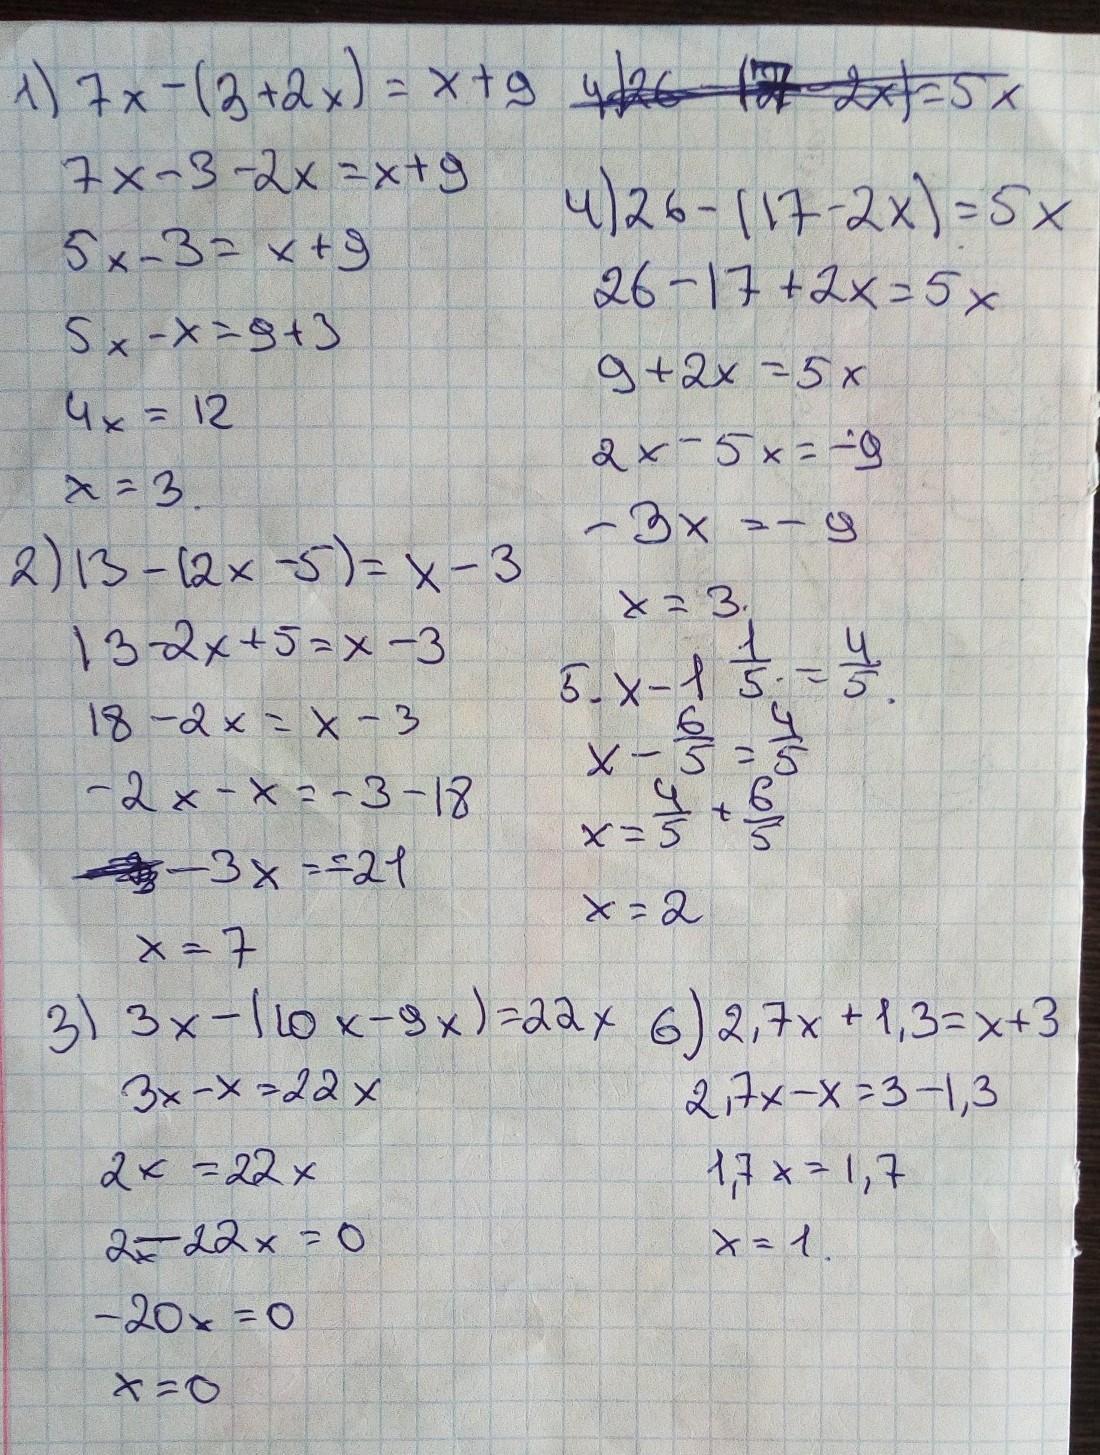 1) 7x - (3 + 2x) = x + 9
7x - 3 - 2x = x + 9
5x - 3 = x + 9
5x - x = 9 + 3
4x = 12
x = 3.
2) 13 - (2x - 5) = x - 3
13 - 2x + 5 = x - 3
18 - 2x = x - 3
-2x - x = -3 - 18
-3x = -21
x = 7
3) 3x - (10x - 9x) = 22x
3x - x = 22x
2x = 22x
2x - 22x = 0
-20x = 0
x = 0
4) 26 - (17 - 2x) = 5x
26 - 17 + 2x = 5x
9 + 2x = 5x
2x - 5x = -9
-3x = -9
x = 3.
5. x - 1 1/5 = 4/5.
x - 6/5 = 4/5
x = 4/5 + 6/5
x = 2
6) 2,7x + 1,3 = x + 3
2,7x - x = 3 - 1,3
1,7x = 1,7
x = 1.